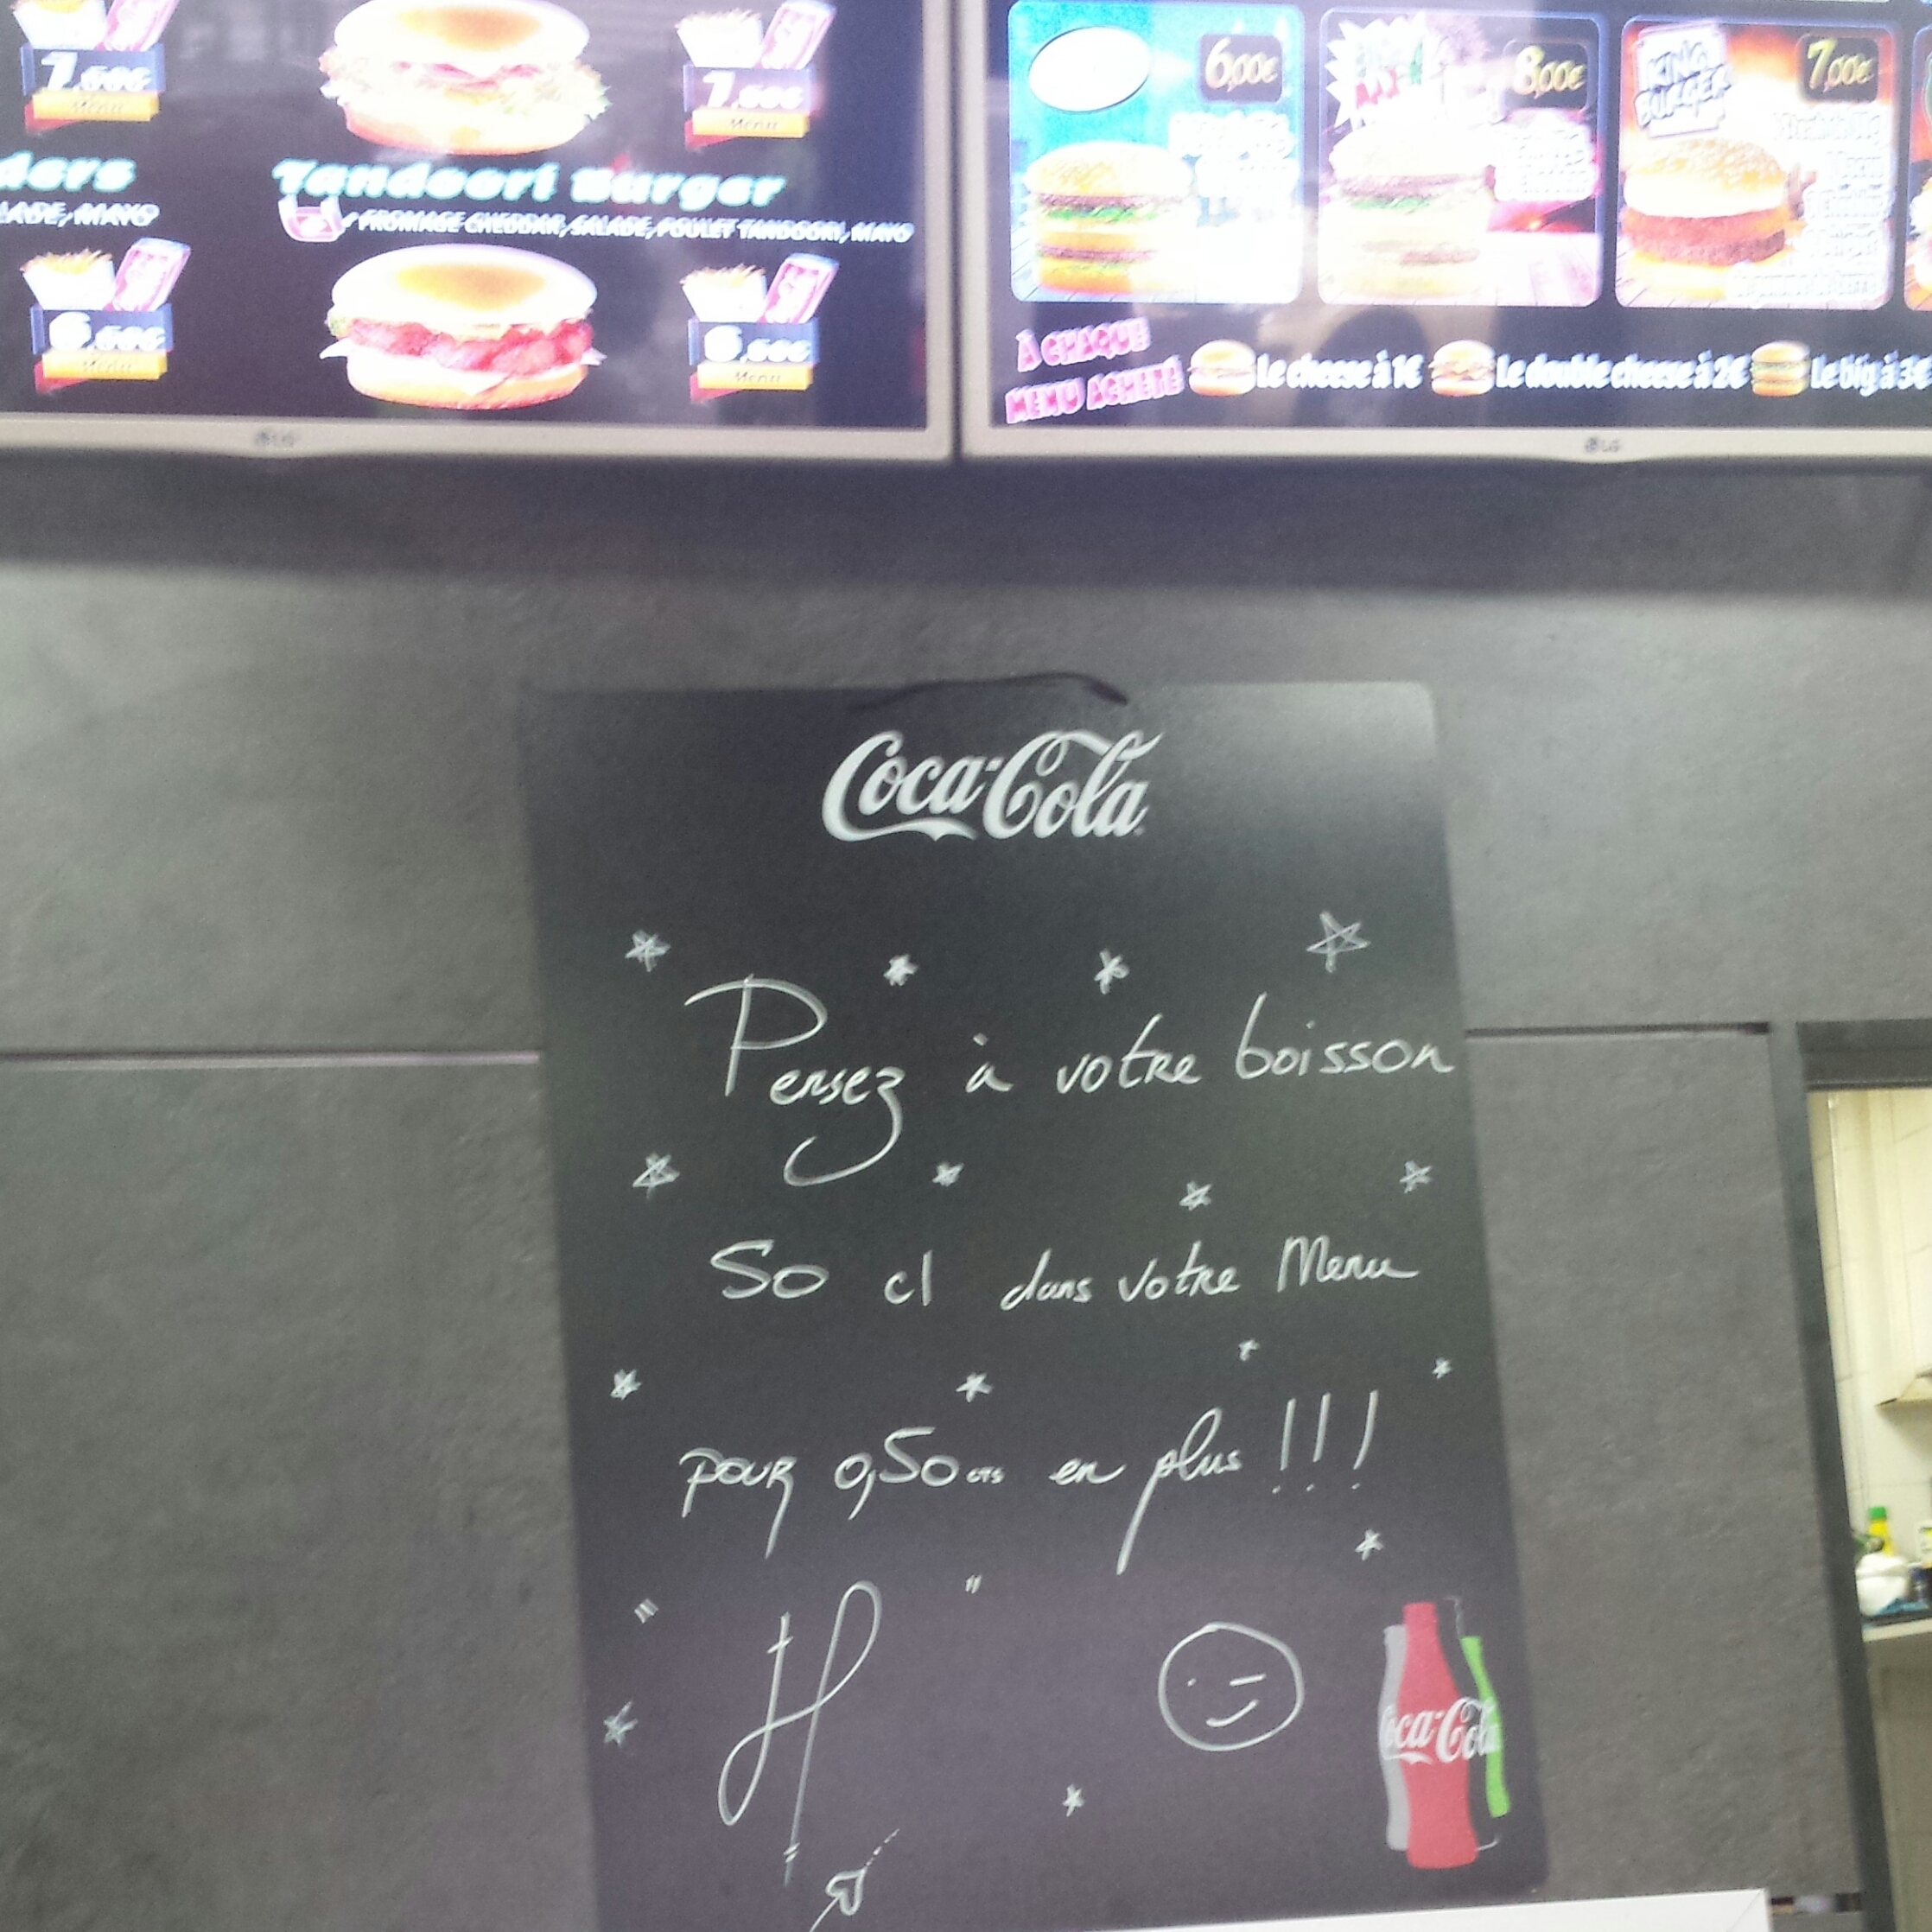 7.50€
Menu
7.50€
Menu
Tandoori Burger
FROMAGE CHEDDAR, SALADE, POULET TANDOORI, MAYO
LADE, MAYO
6.50€
Menu
6.50€
Menu
LG
6,00€
8,00€
KING BURGER
7,00€
À CHAQUE
MENU ACHETÉ
Le cheese à 1€ Le double cheese à 2€ Le big à 3€
LG
Coca-Cola
Pensez à votre boisson
50 cl dans votre Menu
pour 0,50 cts en plus !!!
Coca-Cola